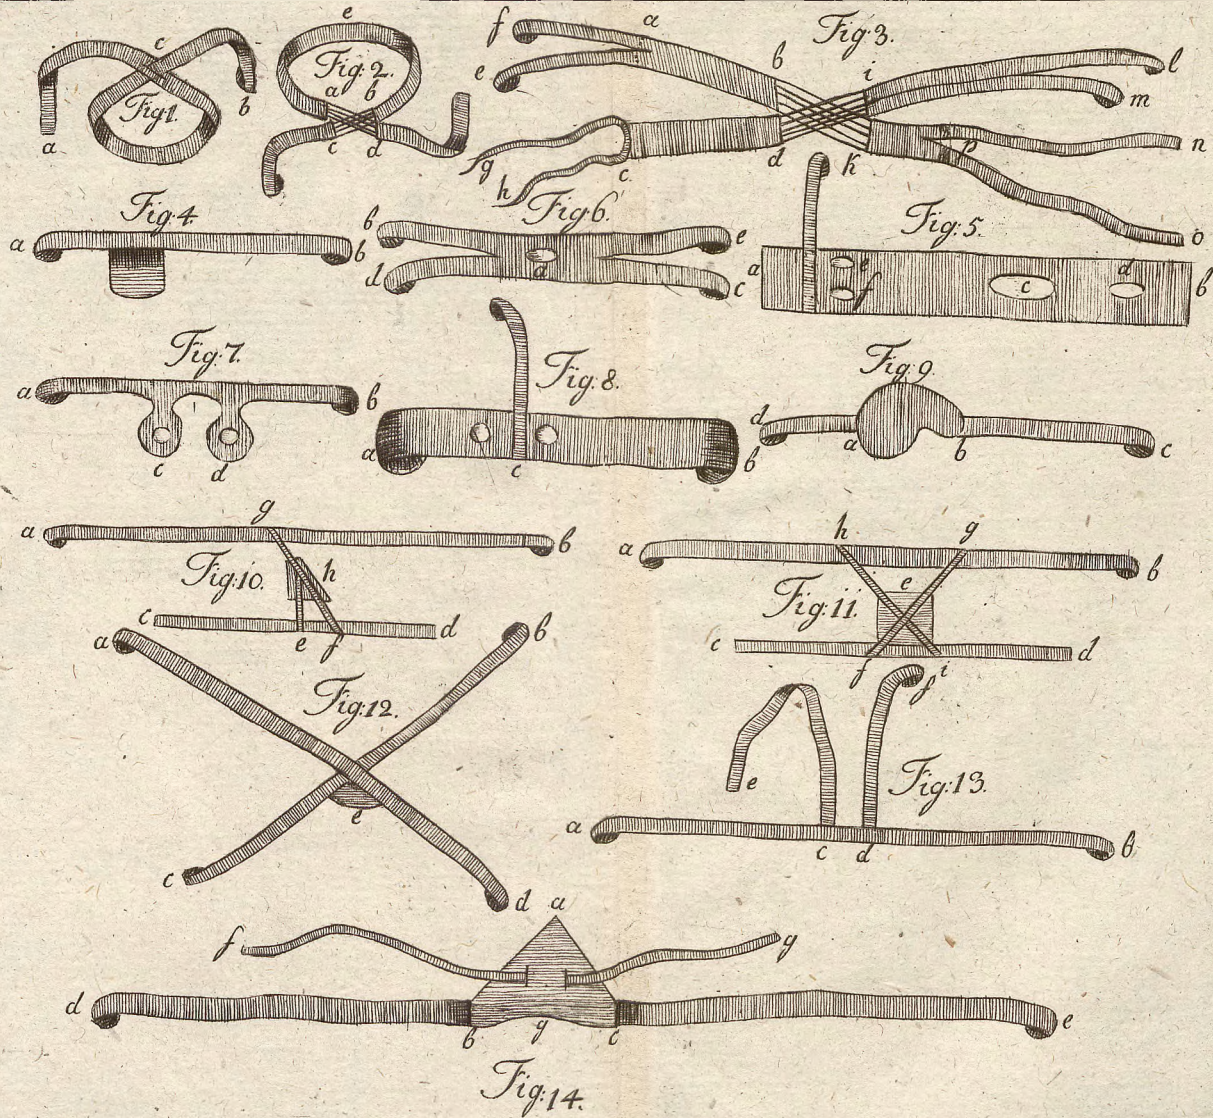 Fig:1.
a
b
c
Fig:2.
e
a b
c d
Fig:3.
f
a
e
b
i
l
m
n
d
k
p
g
h
c.
o
Fig:4.
a
b
Fig:6.
b
e
a
d
c
Fig:5.
a
e
f
c
d
b
Fig:7.
a
b
c
d
Fig:8.
a
c
b
Fig:9.
d
a
b
c
Fig:10.
a
g
b
h
c
e
f
d
Fig:11.
a
h
g
b
e
c
f
i
d
Fig:12.
a
b
e
c
d
Fig:13.
f
e
a
c
d
b
a
f
g
d
b
g
c
e
Fig:14.